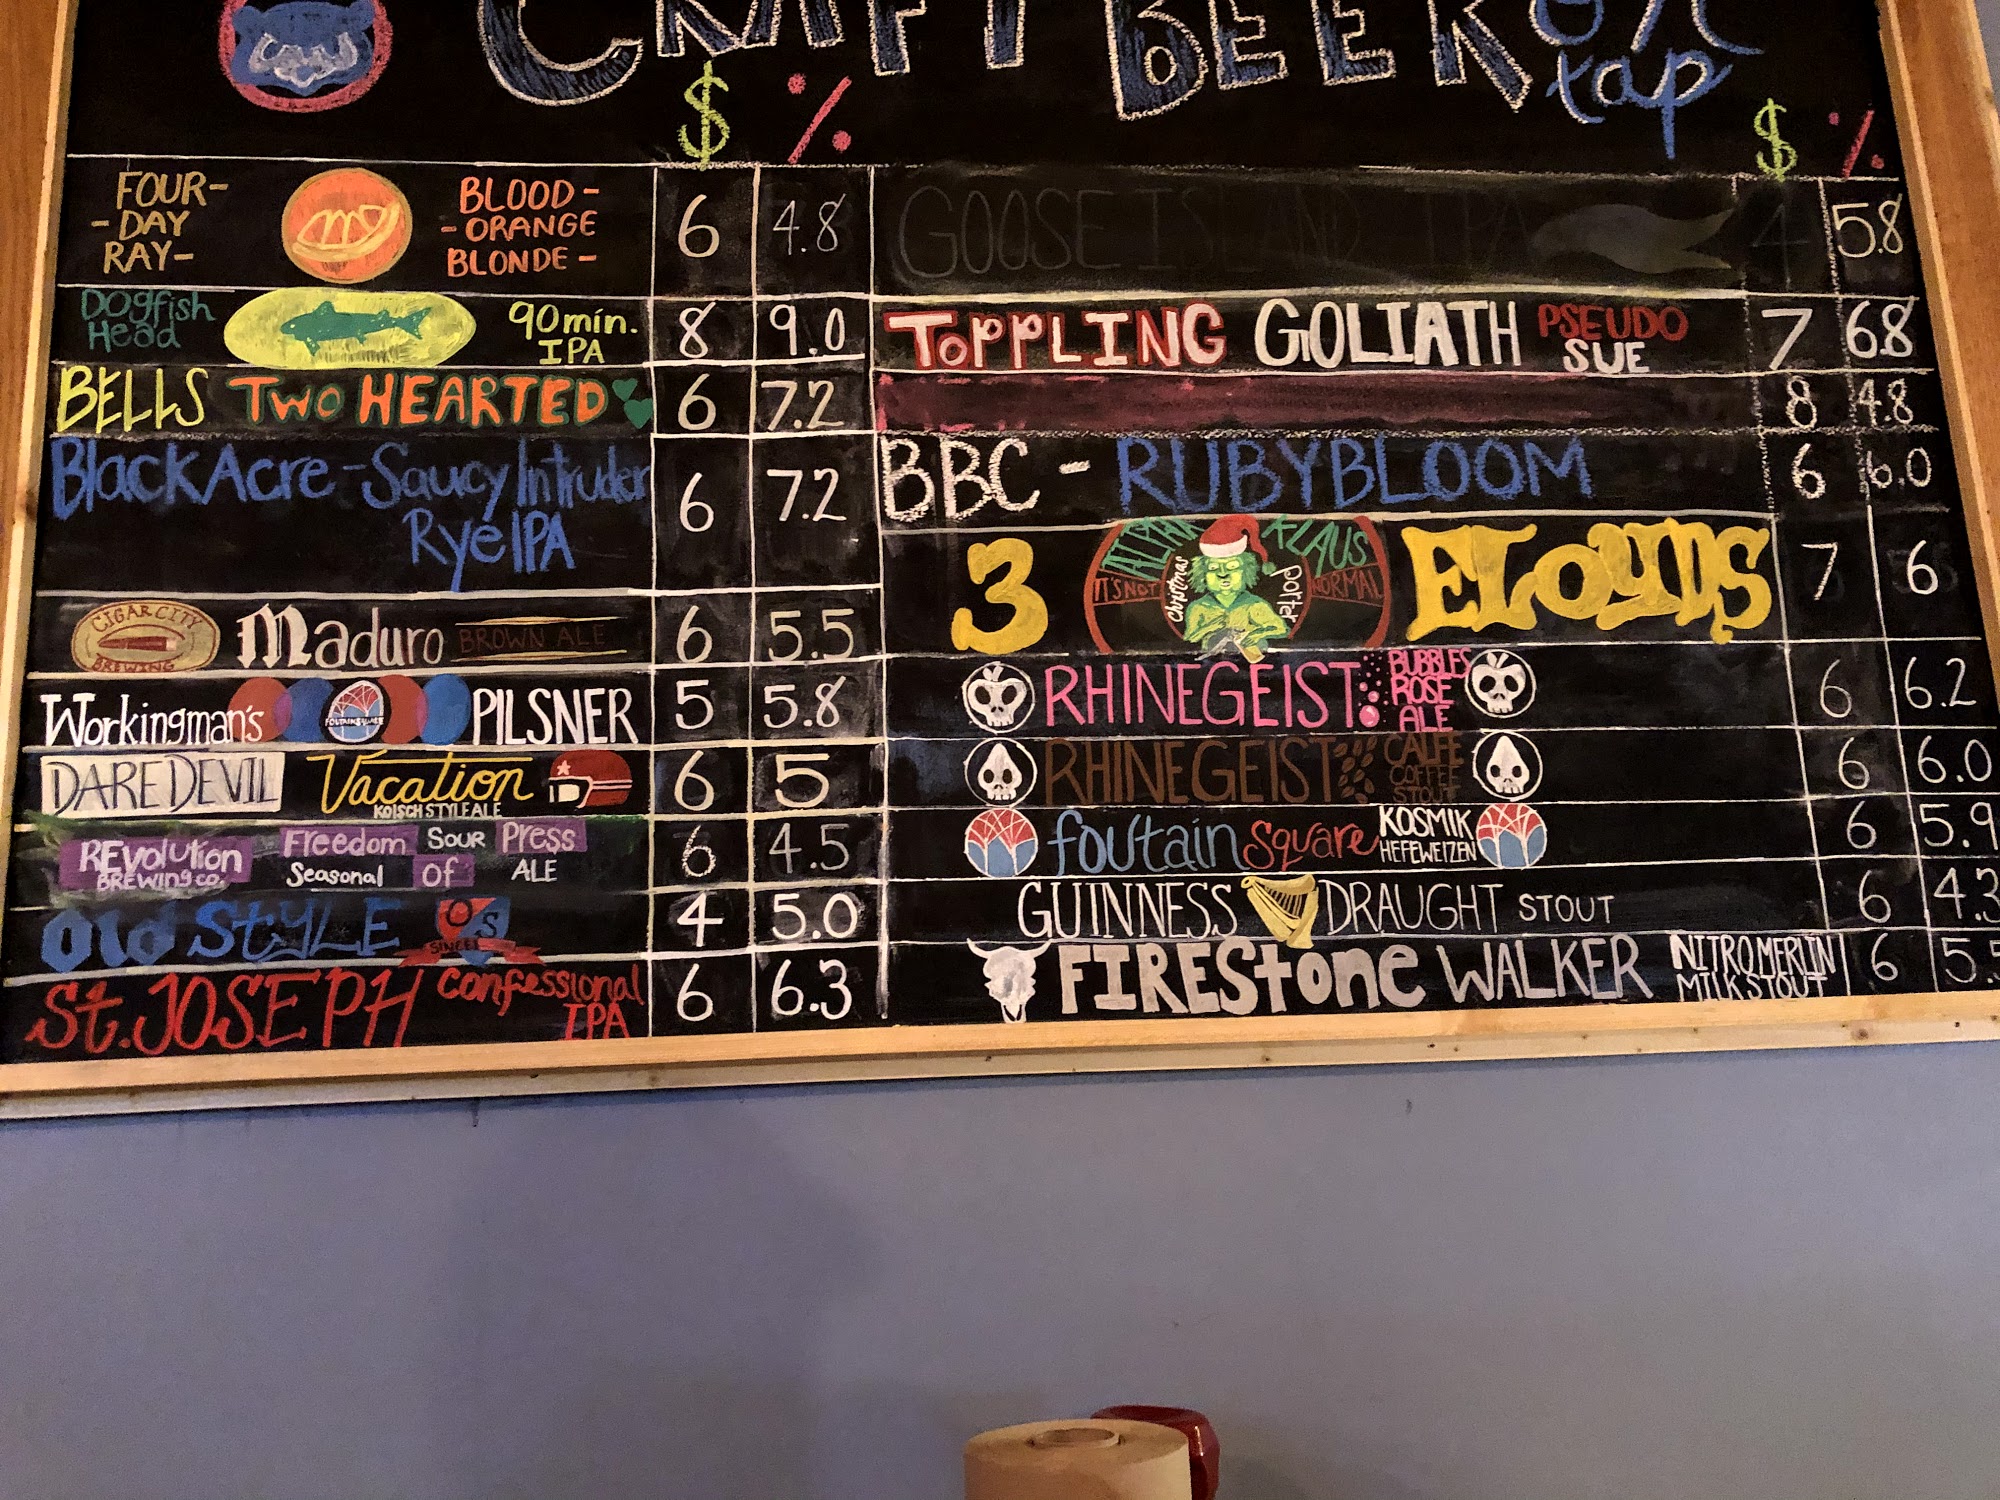 CRAFT BEER on
tap
$ %
$ %
FOUR-
-DAY
RAY-
BLOOD-
-ORANGE
BLONDE-
6 4.8
Dogfish
Head
90min.
IPA
8 9.0
BELLS TWO HEARTED
6 7.2
Black Acre - Saucy Intruder
Rye IPA
6 7.2
CIGAR CITY
BREWING
Maduro BROWN ALE
6 5.5
Workingman's
PILSNER
5 5.8
DARE DEVIL
Vacation
KOLSCH STYLE ALE
6 5
REvolution
BREWING CO.
Freedom Of Press
Seasonal SOUR ALE
6 4.5
Old StYLE OS
SINCE
4 5.0
St. JOSEPH Confessional
IPA
6 6.3
GOOSE ISLAND IPA
4 5.8
TOPPLING GOLIATH PSEUDO
SUE
7 6.8
8 4.8
BBC - RUBYBLOOM
6 6.0
3 FLOYDS
KLAUS
IT'S NOT NORMAL
Christmas
porter
7 6
RHINEGEIST BUBBLES
ROSE
ALE
6 6.2
RHINEGEIST CALFE
COFFEE
STOUT
6 6.0
foutain Square KOSMIK
HEFEWEIZEN
6 5.9
GUINNESS DRAUGHT STOUT
6 4.3
FIREStone WALKER NITRO MERLIN
MILK STOUT
6 5.5